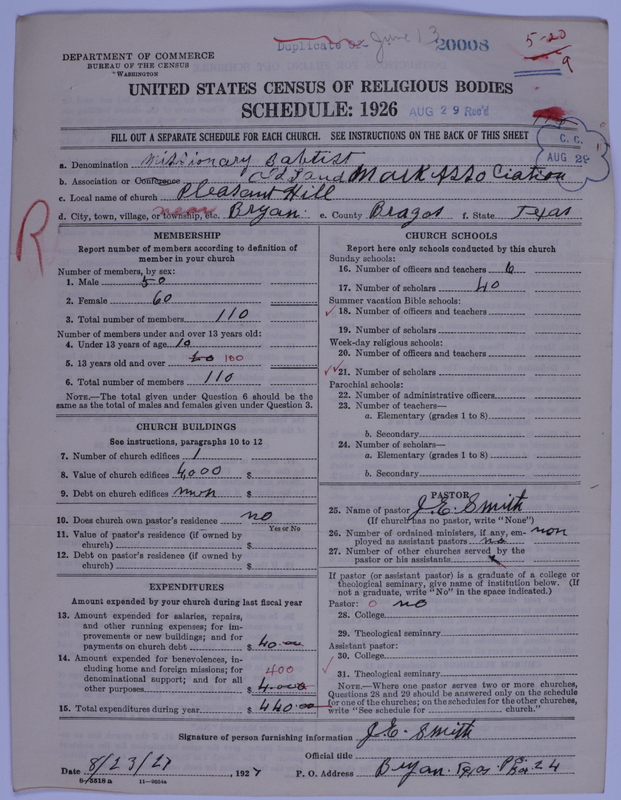 Duplicate June 13 20008
5-20
9
DEPARTMENT OF COMMERCE
BUREAU OF THE CENSUS
WASHINGTON
UNITED STATES CENSUS OF RELIGIOUS BODIES
SCHEDULE: 1926 AUG 29 Rec'd
FILL OUT A SEPARATE SCHEDULE FOR EACH CHURCH. SEE INSTRUCTIONS ON THE BACK OF THIS SHEET
C. C.
AUG 29
a. Denomination Missionary Baptist
b. Association or Conference Old Land Mark Association
c. Local name of church Pleasant Hill
d. City, town, village, or township, etc. near Bryan. e. County Brazos f. State Texas
R
MEMBERSHIP
Report number of members according to definition of
member in your church
Number of members, by sex:
1. Male 50
2. Female 60
3. Total number of members 110
Number of members under and over 13 years old:
4. Under 13 years of age 10
5. 13 years old and over 100
6. Total number of members 110
NOTE.—The total given under Question 6 should be the
same as the total of males and females given under Question 3.
CHURCH BUILDINGS
See instructions, paragraphs 10 to 12
7. Number of church edifices 1
8. Value of church edifices 4,000 $
9. Debt on church edifices $
10. Does church own pastor's residence no
Yes or No
11. Value of pastor's residence (if owned by
church) $
12. Debt on pastor's residence (if owned by
church) $
EXPENDITURES
Amount expended by your church during last fiscal year
13. Amount expended for salaries, repairs,
and other running expenses; for im-
provements or new buildings; and for
payments on church debt $ 40.00
14. Amount expended for benevolences, in-
cluding home and foreign missions; for
denominational support; and for all
other purposes 400 $ 4.000
15. Total expenditures during year $ 440.00
CHURCH SCHOOLS
Report here only schools conducted by this church
Sunday schools:
16. Number of officers and teachers 6
17. Number of scholars 40
Summer vacation Bible schools:
18. Number of officers and teachers
19. Number of scholars
Week-day religious schools:
20. Number of officers and teachers
21. Number of scholars
Parochial schools:
22. Number of administrative officers
23. Number of teachers—
a. Elementary (grades 1 to 8)
b. Secondary
24. Number of scholars—
a. Elementary (grades 1 to 8)
b. Secondary
PASTOR
25. Name of pastor J. E. Smith
(If church has no pastor, write "None")
26. Number of ordained ministers, if any, em-
ployed as assistant pastors no non
27. Number of other churches served by the
pastor or his assistants
If pastor (or assistant pastor) is a graduate of a college or
theological seminary, give name of institution below. (If
not a graduate, write "No" in the space indicated.)
Pastor: 0 no
28. College
29. Theological seminary
Assistant pastor:
30. College
31. Theological seminary
NOTE.—Where one pastor serves two or more churches,
Questions 28 and 29 should be answered only on the schedule
for one of the churches; on the schedules for the other churches,
write "See schedule for church."
Signature of person furnishing information J. E. Smith
Official title
Date 8/23/27, 1927 P. O. Address Bryan. Texas P.O. Box 24
8-5518a 11-9604a